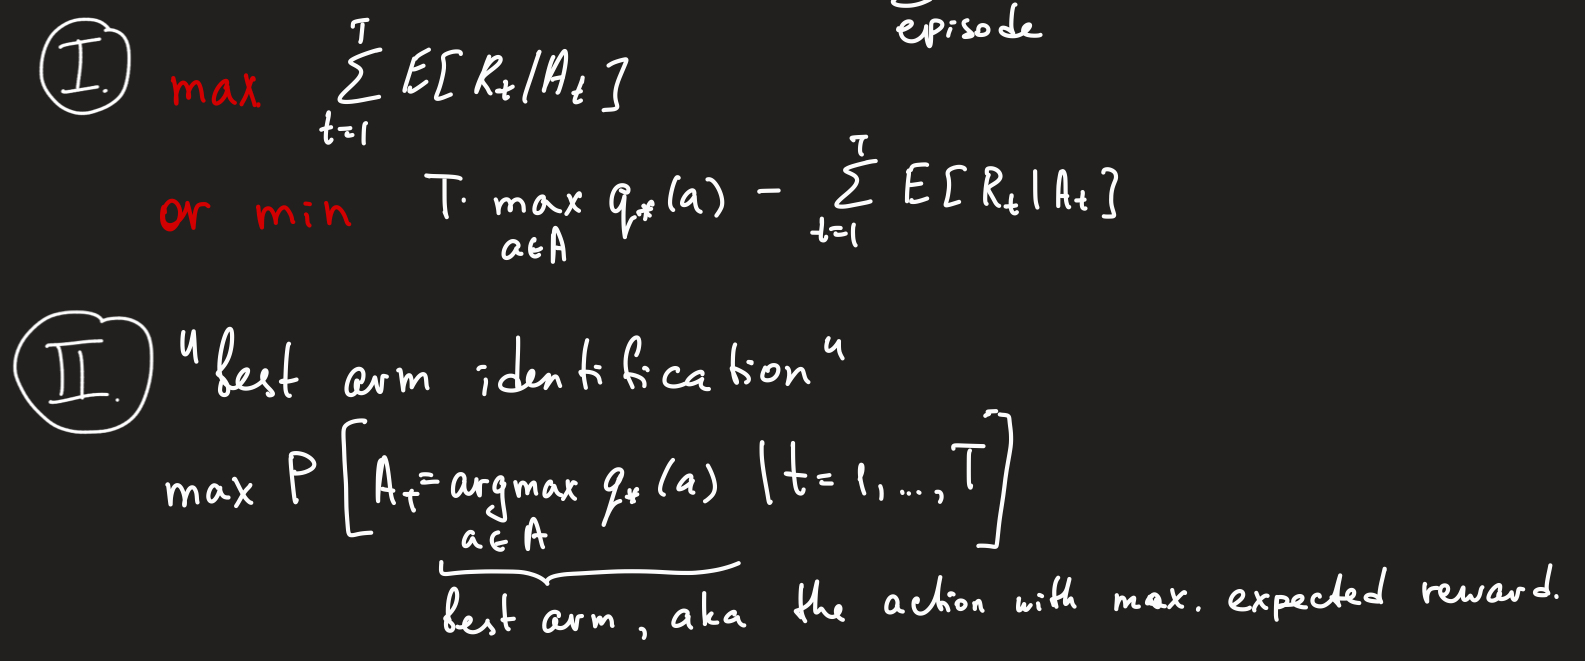 episode
I. max T Σ t=1 E[ R_t / A_t ]
or min T · max a∈A q_*(a) − T Σ t=1 E[ R_t | A_t ]
II. "best arm identification"
max P [ A_t = argmax a∈A q_*(a) | t = 1, ..., T ]
best arm, aka the action with max. expected reward.